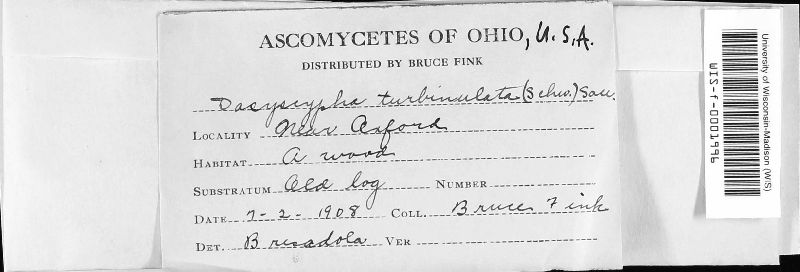 ASCOMYCETES OF OHIO, U.S.A.
DISTRIBUTED BY BRUCE FINK
Dasyscypha turbinulata (Schw.) Sacc.
LOCALITY Near Oxford
HABITAT A wood
SUBSTRATUM Old log NUMBER
DATE 7-2-1908 COLL. Bruce Fink
DET. Bresadola VER
University of Wisconsin-Madison (WIS)
WIS-f-0001996